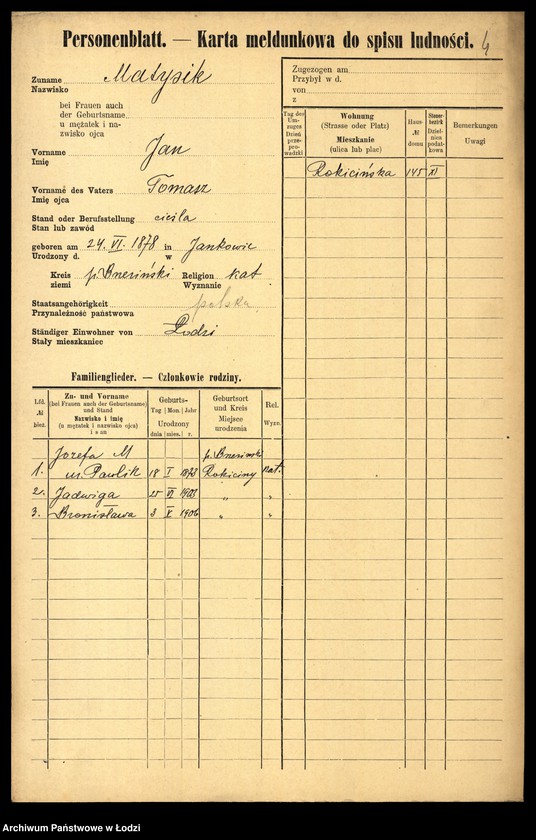 Personenblatt. — Karta meldunkowa do spisu ludności. 4
Zuname Matysik
Nazwisko
bei Frauen auch
der Geburtsname
u mężatek i na-
zwisko ojca
Vorname Jan
Imię
Vorname des Vaters Tomasz
Imię ojca
Stand oder Berufsstellung cieśla
Stan lub zawód
geboren am 24. VI. 1878 in Jankowic
Urodzony d. w
Kreis p. Brzeziński Religion kat
ziemi Wyznanie
Staatsangehörigkeit polska
Przynależność państwowa
Ständiger Einwohner von Łodzi
Stały mieszkaniec
Zugezogen am
Przybył w d.
von
z
Tag des Um-zuges Dzień prze-pro-wadzki
Wohnung
(Strasse oder Platz)
Mieszkanie
(ulica lub plac)
Haus- № domu
Steuer-bezirk Dziel-nica podat-kowa
Bemerkungen
Uwagi
Rokicińska 145 XI
Familienglieder. — Członkowie rodziny.
Lfd. № bież.
Zu- und Vorname
(bei Frauen auch der Geburtsname)
und Stand
Nazwisko i imię
(u mężatek i nazwisko ojca)
i stan
Geburts-
Tag Mon. Jahr
Urodzony
dnia mies. r.
Geburtsort
und Kreis
Miejsce
urodzenia
Rel.
Wyzn.
Józefa M p. Brzeziński
1. ur. Pawlik 18 I 1873 Rokiciny kat.
2. Jadwiga 25 VI 1903 „ „
3. Bronisława 3 X 1906 „ „
Archiwum Państwowe w Łodzi